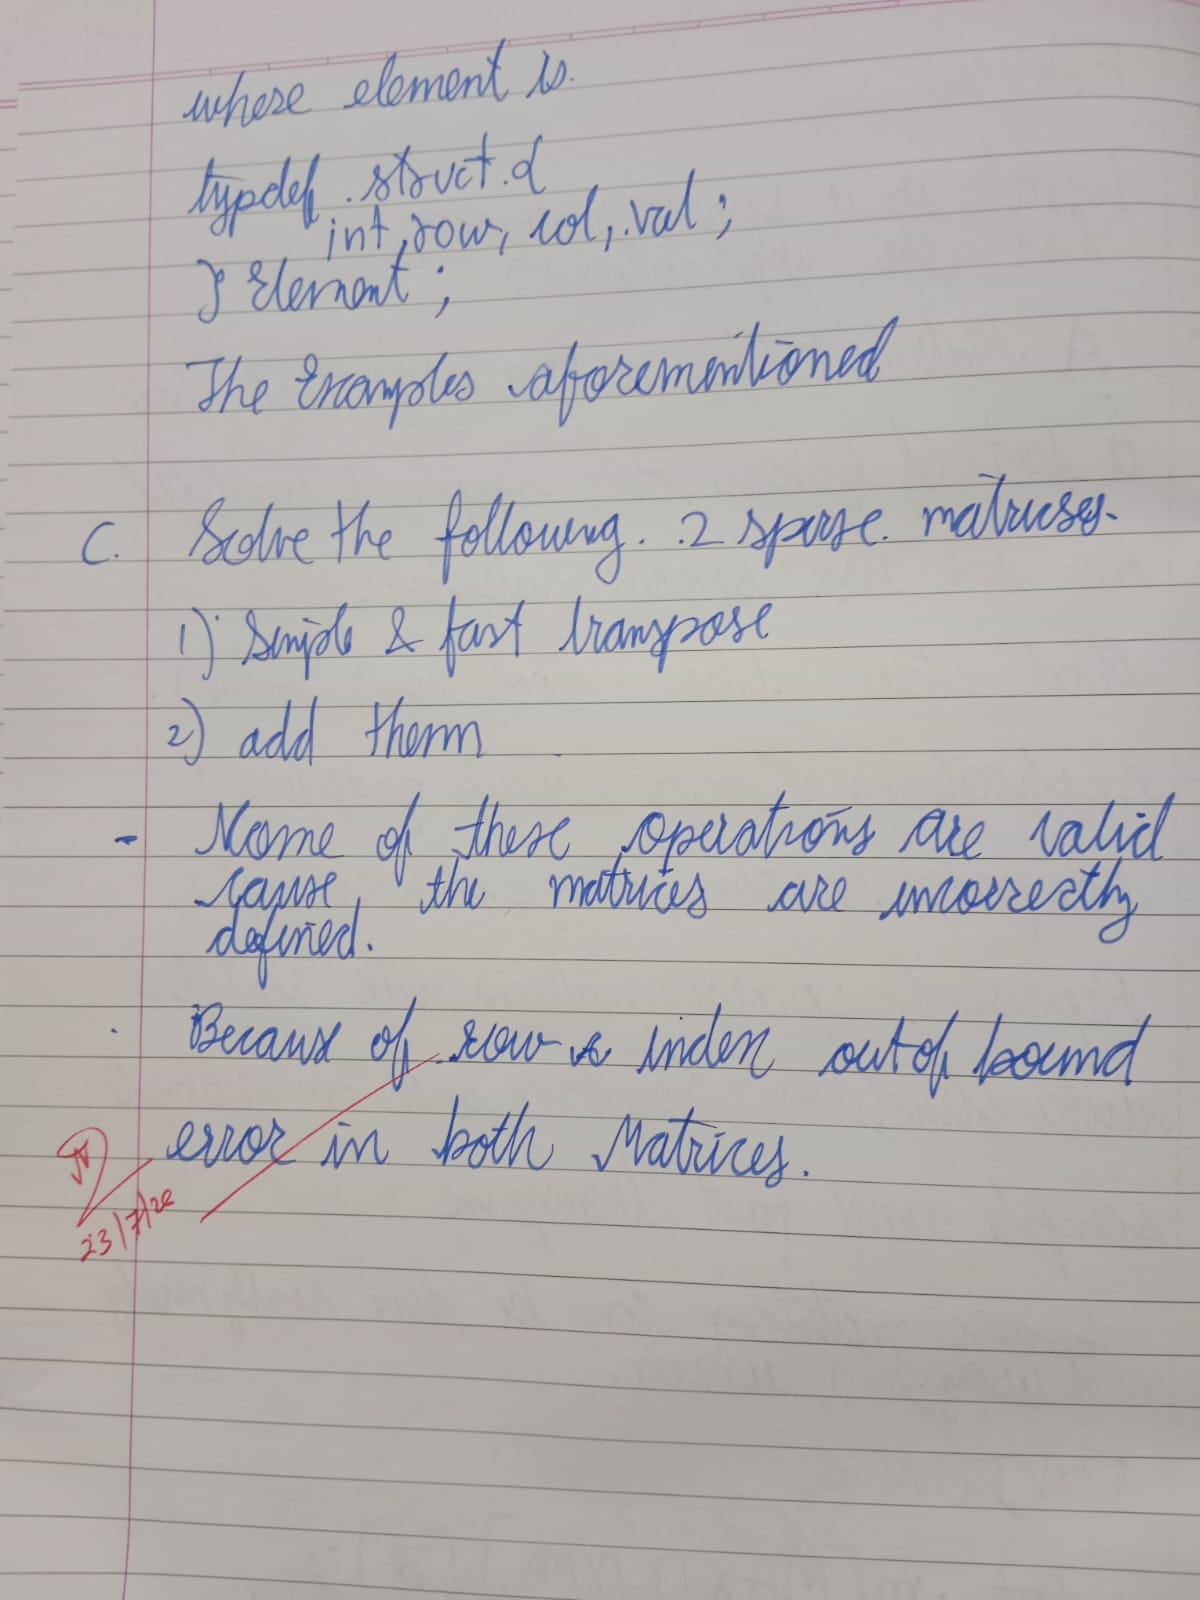 where element is.
typdef struct {
int row, col, val;
} Element;
The Examples aforementioned
C. Solve the following 2 sparse matrices.
1) Simple & fast transpose
2) add them
- None of these operations are valid
cause, the matrices are incorrectly
defined.
. Because of row index out of bound
error in both Matrices.
23/7/26